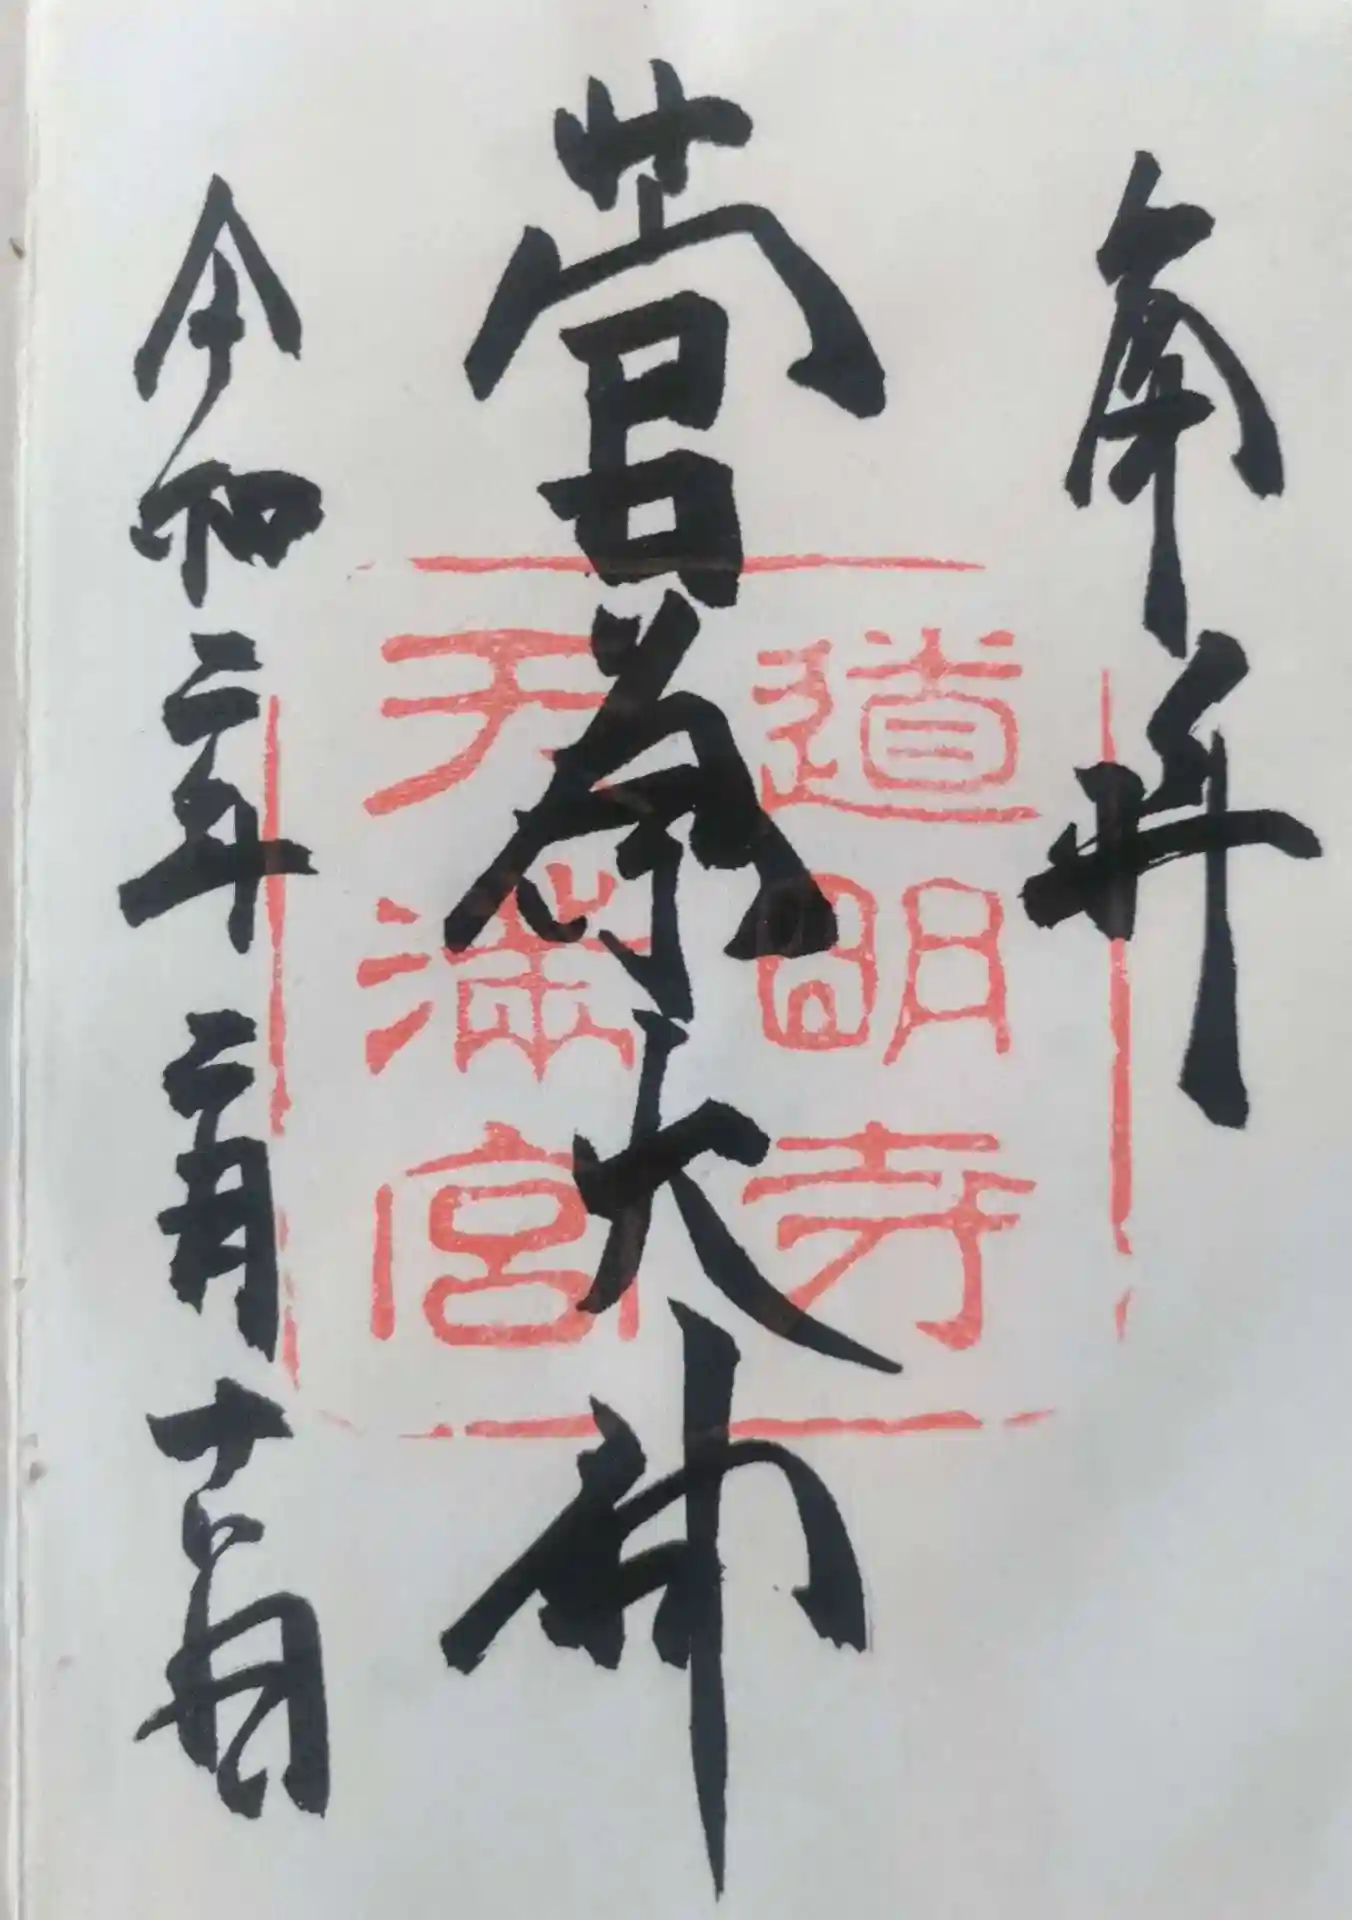 奉拝
菅原大神
道明寺
天満宮
令和二年二月十日